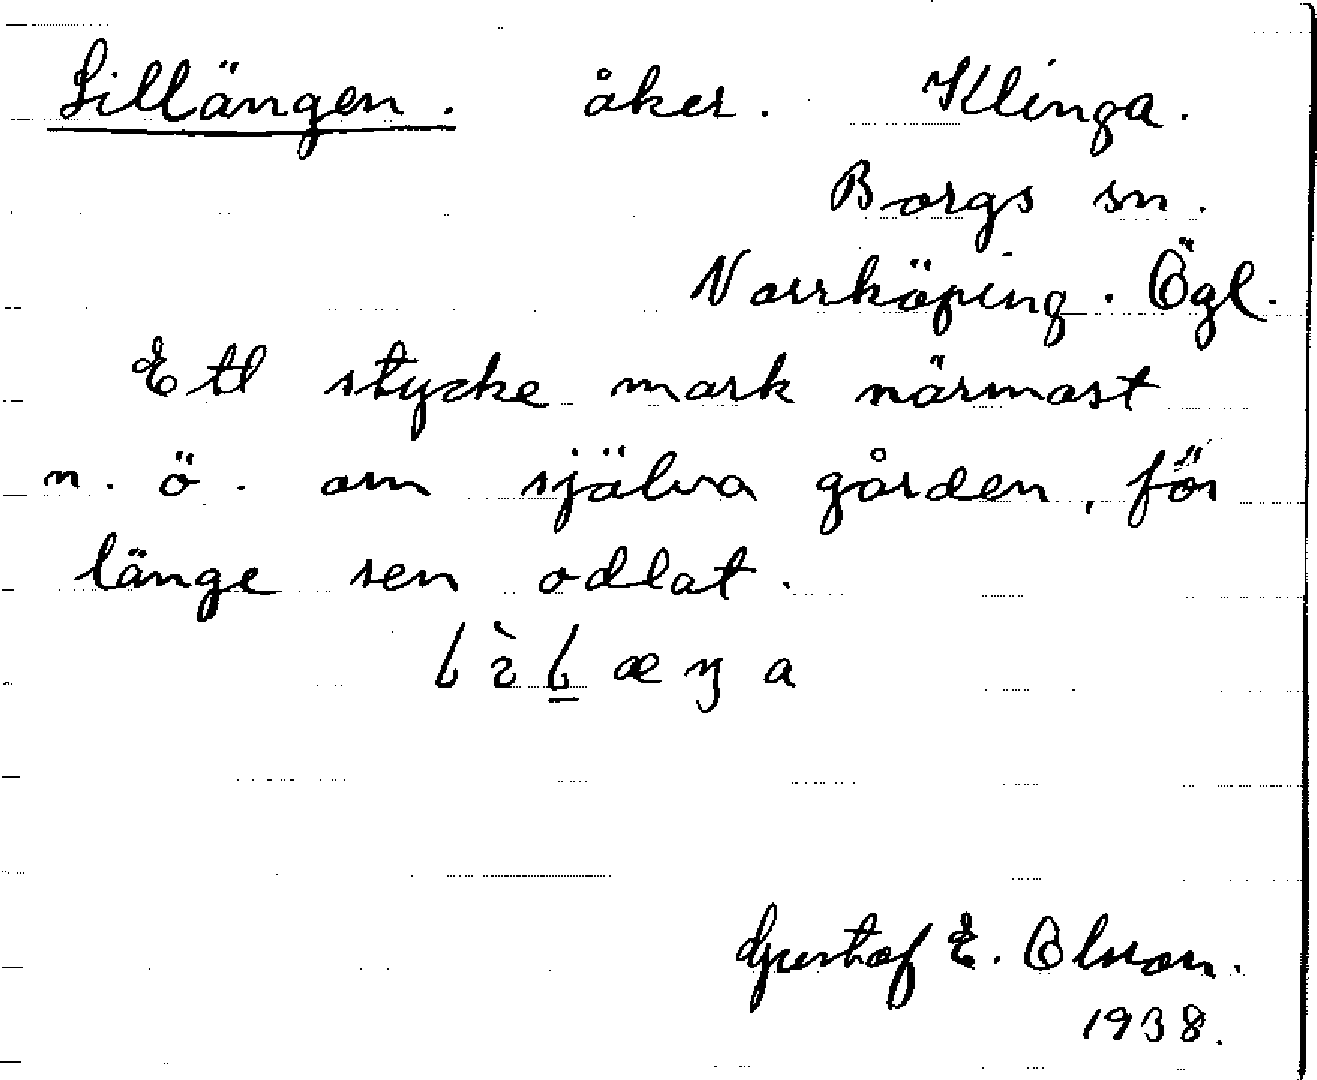 Lillängen. åker. Klinga.
Borgs sn.
Norrköping. Ögl.
Ett stycke mark närmast
n. ö. om själva gården, för
länge sen odlat.
Gustaf E. Olsson.
1938.